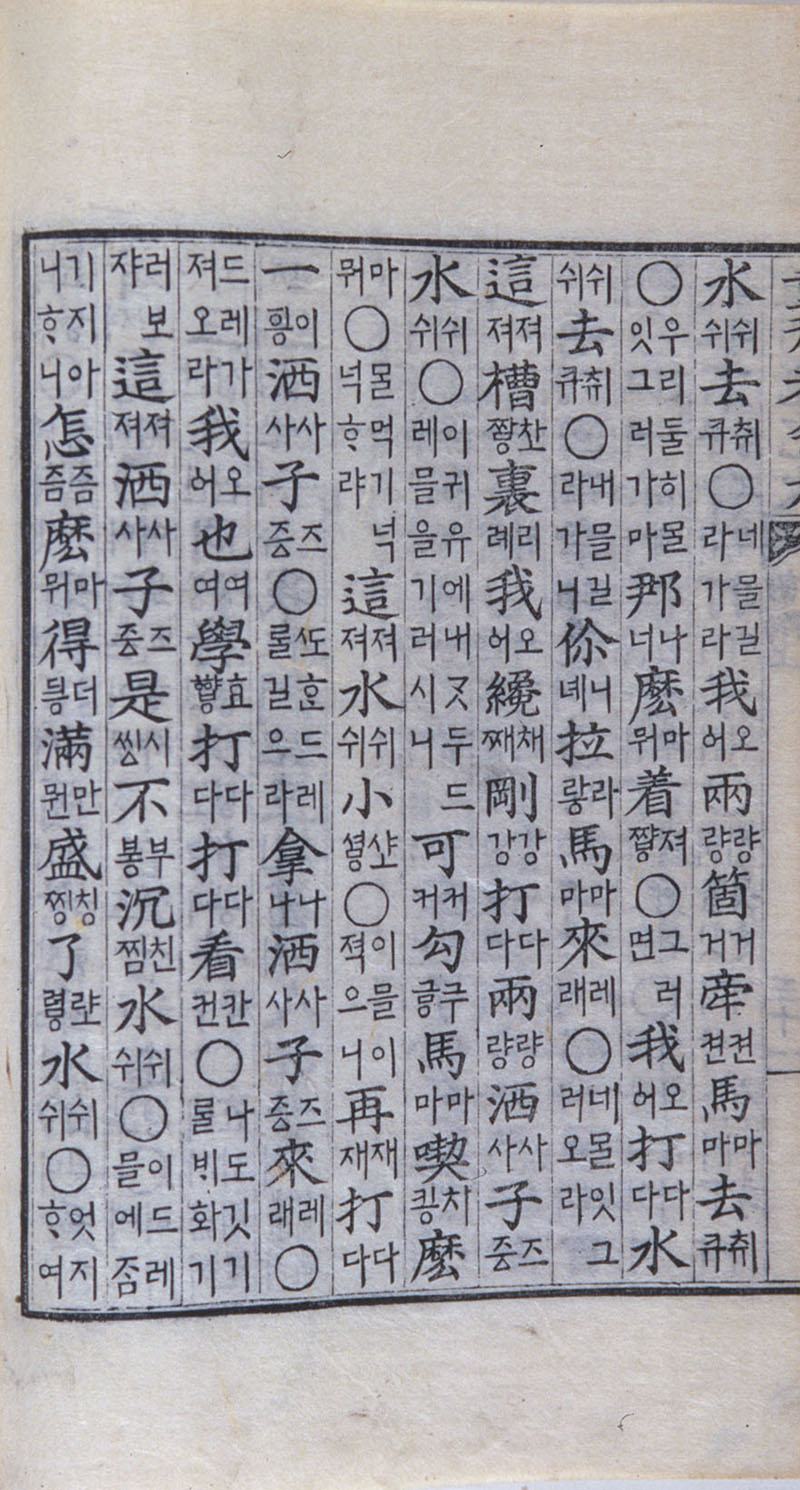 水쉬쉬去큐취○네믈길라가라我어오兩량량箇거거牽켠켠馬마마去큐취
○우리둘히몰잇그러가마那너나麽뭐마着쨯져○그러면我어오打다다水
쉬쉬去큐취○내믈길라가니你녜니拉랗라馬마마來래레○네몰잇그러오라
這져져槽쨩찬裏례리我어오纔째채剛강강打다다兩량량洒사사子증즈
水쉬쉬○이귀유에내ᄀᆞᆺ두드레믈을기러시니可커커勾긓구馬마마喫킹치麽
뭐마○몰먹기넉넉ᄒᆞ랴這져져水쉬쉬小셯샾○이믈이젹으니再재재打다다
一힁이洒사사子증즈○ᄯᅩᄒᆞᆫ드레룰길으라拿나나洒사사子증즈來래레○
드레가져오라我어오也여여學ᅘᅣᇢ효打다다打다다看컨칸○나도깃기룰ᄇᆡ화기
러보쟈這져져洒사사子증즈是씽시不봉부沉찜친水쉬쉬○이드레믈에좀
기지아니ᄒᆞ니怎즘즘麽뭐마得딍더滿뭔만盛찡칭了렿랖水쉬쉬○엇지ᄒᆞ여